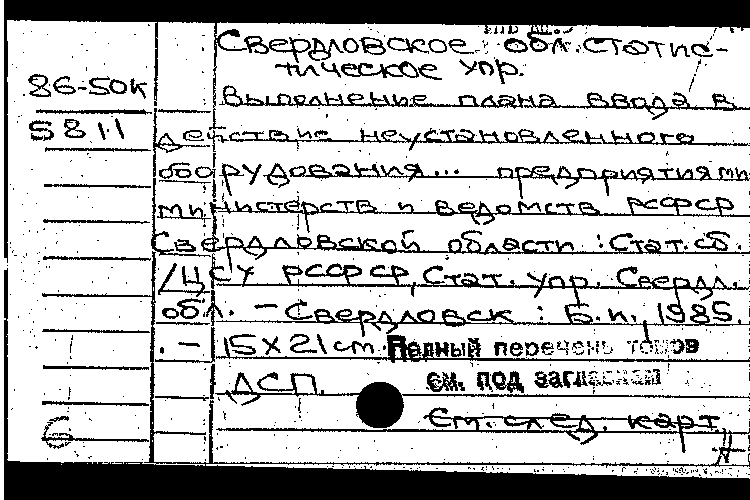 Свердловское обл. статис-
тическое упр.
86-50к
Выполнение плана ввода в
5811
действие неустановленного
оборудования... предприятиями
министерств и ведомств РСФСР
Свердловской области : Стат. сб.
/ЦСУ РСФСР, Стат. упр. Свердл.
обл. – Свердловск : Б.и., 1985.
. – 15х21 cm.
Полный перечень томов
см. под заглавием
ДСП.
См. след. карт
6